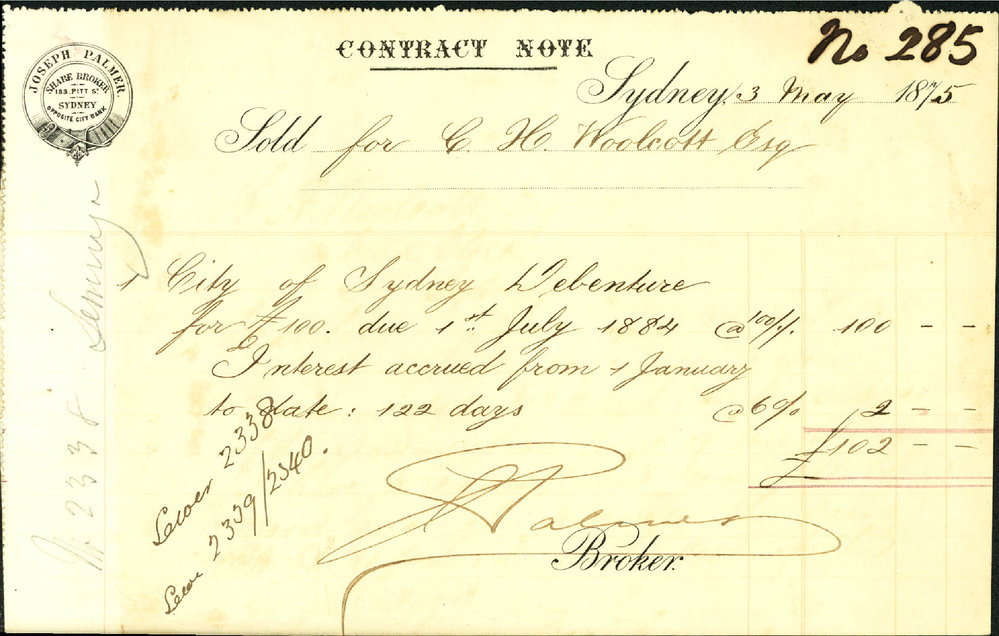 No 285
CONTRACT NOTE
JOSEPH PALMER.
SHARE BROKER
183. PITT St
SYDNEY
OPPOSITE CITY BANK
Sydney, 3 May 1875
Sold for C. H. Woolcott Esq
1 City of Sydney Debenture
for £100. due 1st July 1884 @ 100/-/. 100 - -
Interest accrued from 1 January
to date: 122 days @ 6% 2 - -
£102 - -
2338
2339/2340.
Palmer
Broker.
No 2338